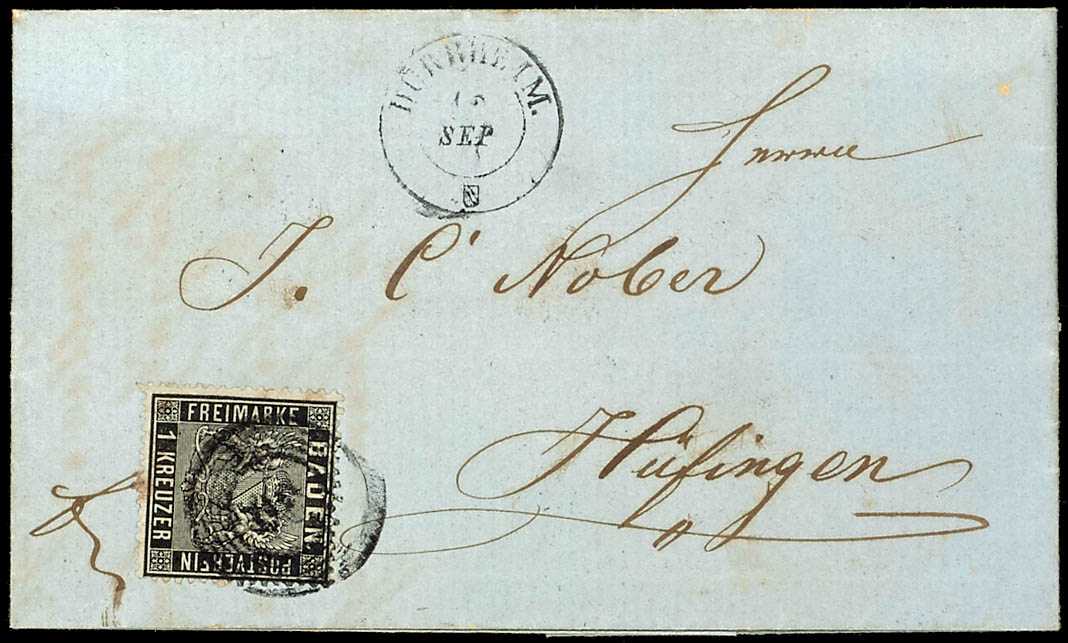 DÜRRHEIM.
12
SEP
Herrn
J. C' Nober
Hüfingen
FREIMARKE
BADEN.
1 KREUZER
POSTVEREIN